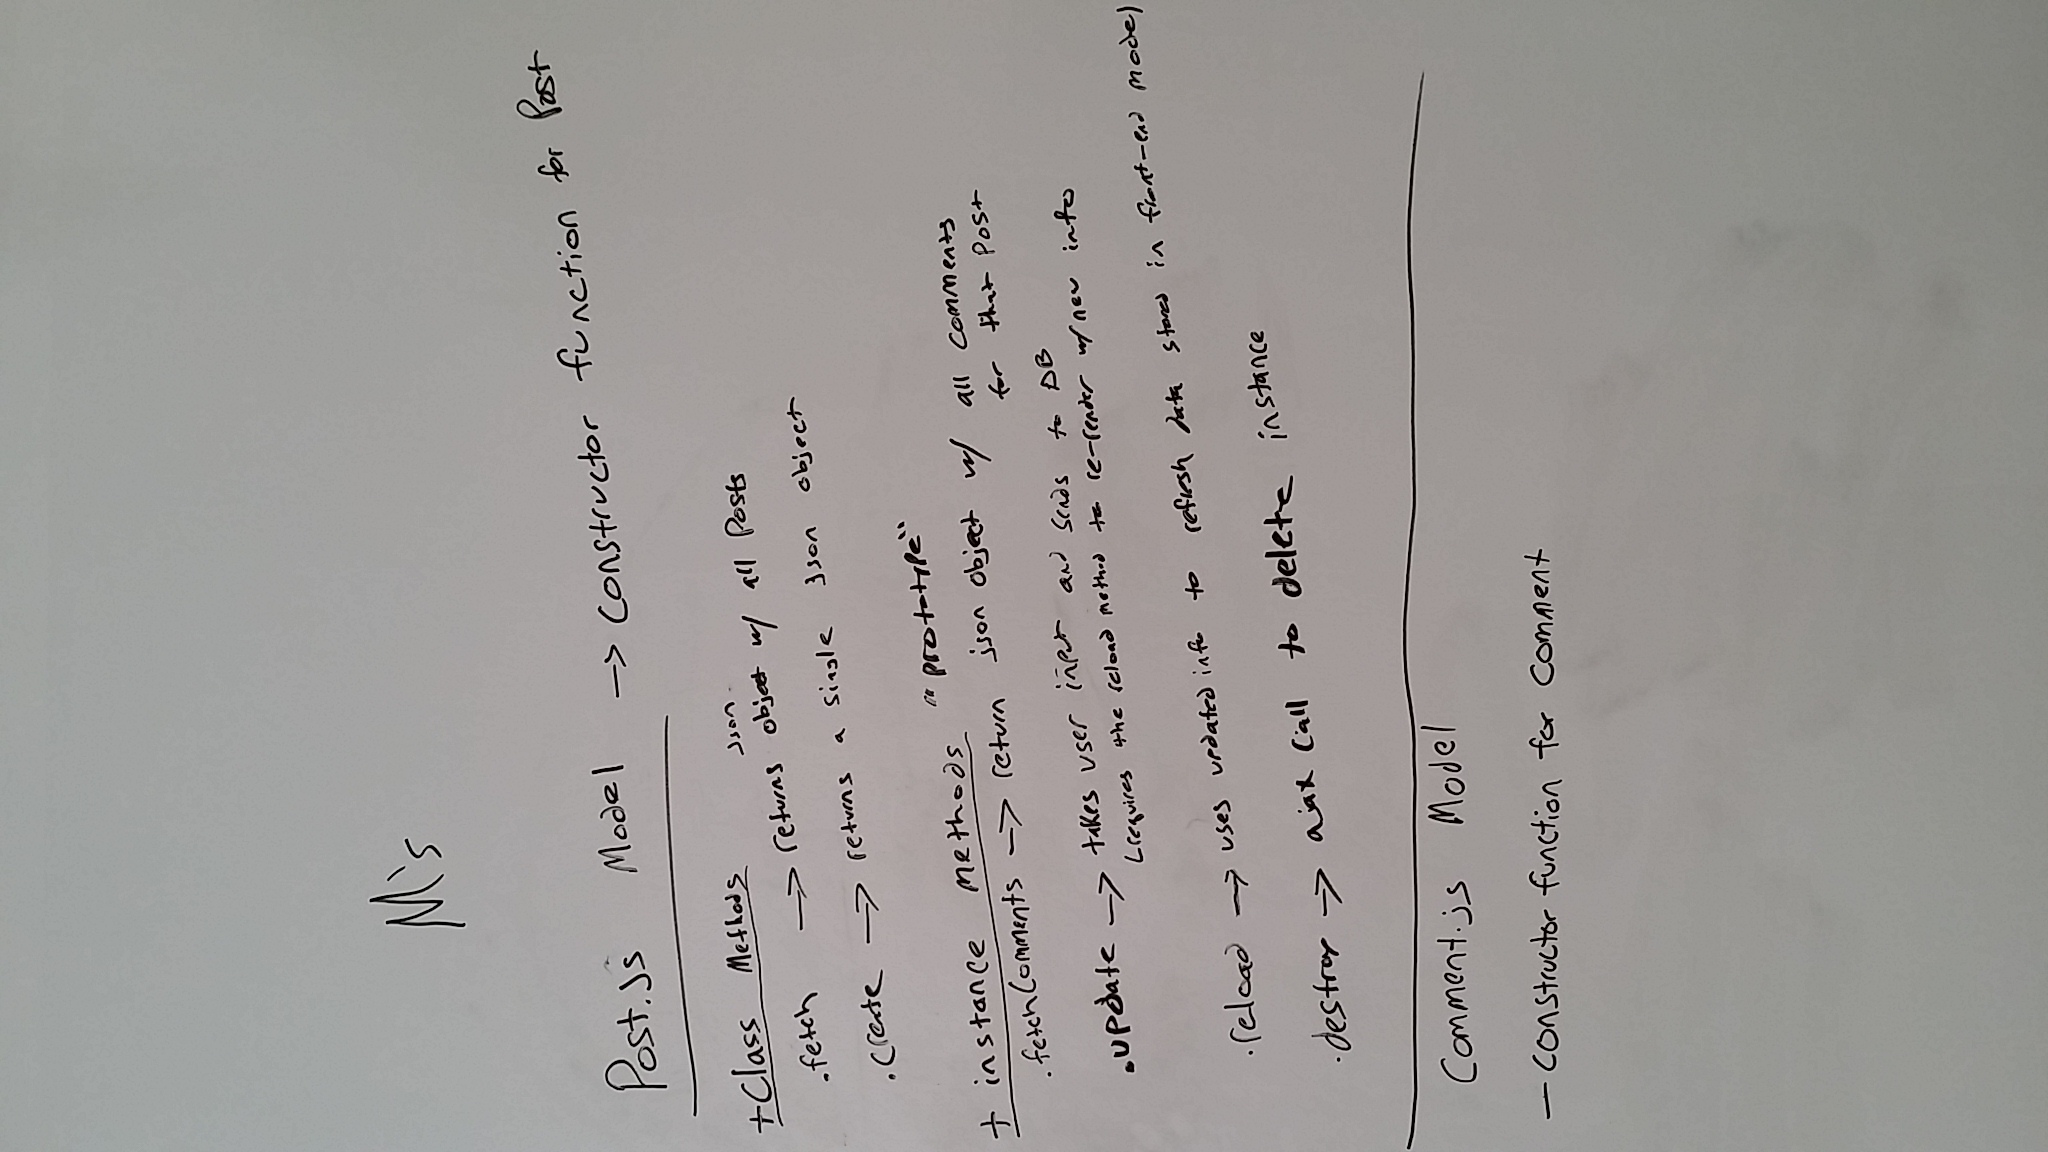 M's
Post.js Model → constructor function for Post
+Class Methods
json
.fetch → returns object w/ all Posts
.create → returns a single json object
+ instance methods "prototype"
.fetchComments → return json object w/ all comments
for that Post
.update → takes user input and sends to DB
(requires the reload method to re-render w/ new info
.reload → uses updated info to refresh data stored in front-end model
.destroy → ajax call to delete instance
Comment.js Model
— constructor function for comment